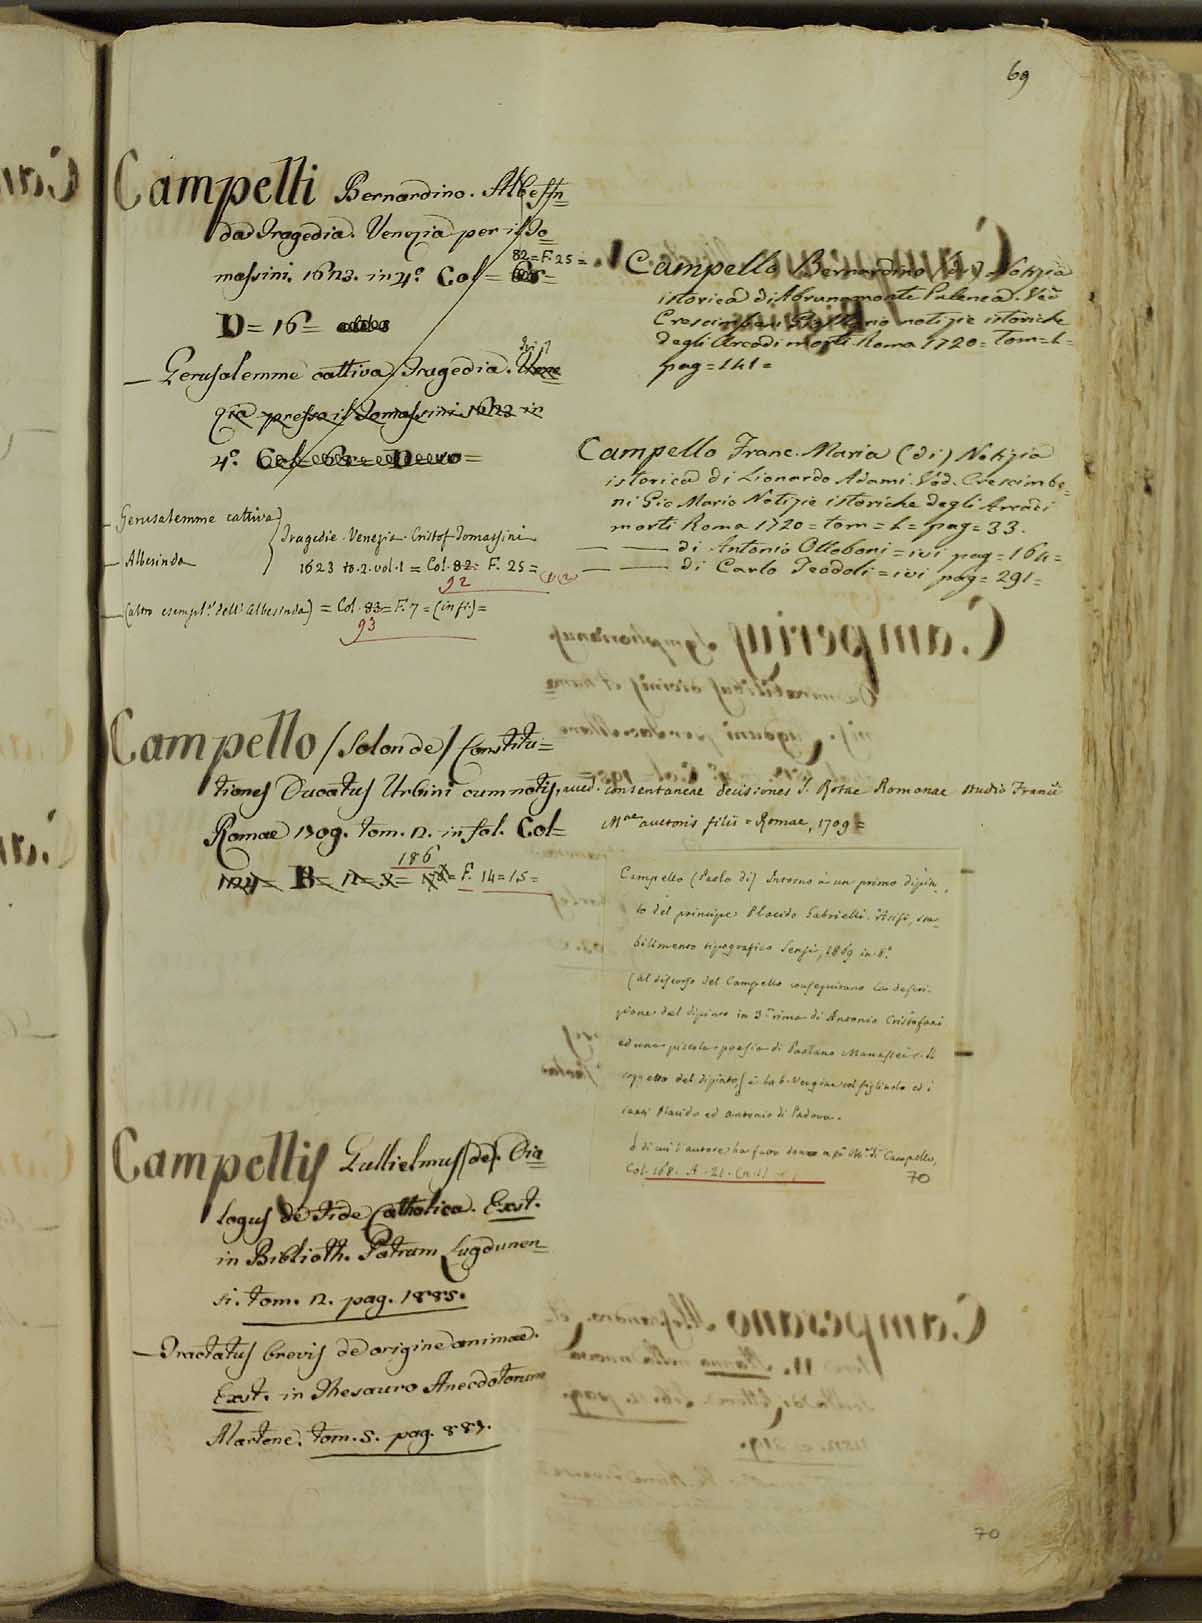 69
Campelli Bernardino. Albesin=
da Tragedia. Venezia per il To=
massini. 1623. in 4.º Col =
82 = F. 25 =
D = 16 =
— Gerusalemme cattiva Tragedia.
ivi
zia presso il Tomassini 1623 in
4.º
— Gerusalemme cattiva
— Albesinda
Tragedie. Venezia. Cristof Tomassini
1623 to. 2. vol. 1 = Col. 82 = F. 25 =
92
— (altro esempl.e dell' Albesinda) = Col. 83 = F. 7 = (in fi.) =
93
Campello /Solon de/ Constitu=
tiones Ducatus Urbini cum notis, acced. consentaneae decisiones S. Rotae Romanae studio Franc.i
Romae 1709. tom. 2. in fol. Col=
M.ae auctoris filii = Romae, 1709 =
186
= F. 14 = 15 =
Campellis Gullielmus /de/. Dia
logus de Fide Catholica. Exst.
in Biblioth. Patrum Lugdunen
si. tom. 2. pag. 1885.
— Tractatus brevis de origine animae.
Exst. in Thesauro Anecdotorum
Martene. tom. 5. pag. 887.
Campello Bernardino (di) Notizia
istorica di Abrunamonte Pulenea. Ved.
Crescimbeni Gio Mario notizie istoriche
degli Arcadi morti Roma 1720 = tom = 1 =
pag = 141 =
Campello Franc. Maria (di) Notizia
istorica di Lionardo Adami. Ved. Crescimbe=
ni Gio Mario Notizie istoriche degli Arcadi
morti Roma 1720 = tom = 1 = pag = 33.
— — di Antonio Ottoboni = ivi pag = 164 =
— — di Carlo Teodoli = ivi pag = 291 =
Campello (Paolo di) Intorno a un primo dipin-
to del principe Placido Gabrielli. Assisi, sta-
bilimento tipografico Sensi, 1869 in 8.º
(al discorso del Campello conseguitano la descri-
zione del dipinto in 3.ª rima di Antonio Cristofani
ed una piccola poesia di Paolano Manassei. Il
soggetto del dipinto è la b. Vergine col figliuolo ed i
santi Placido ed Antonio di Padova.
Col. 168. A. 21.
70
70